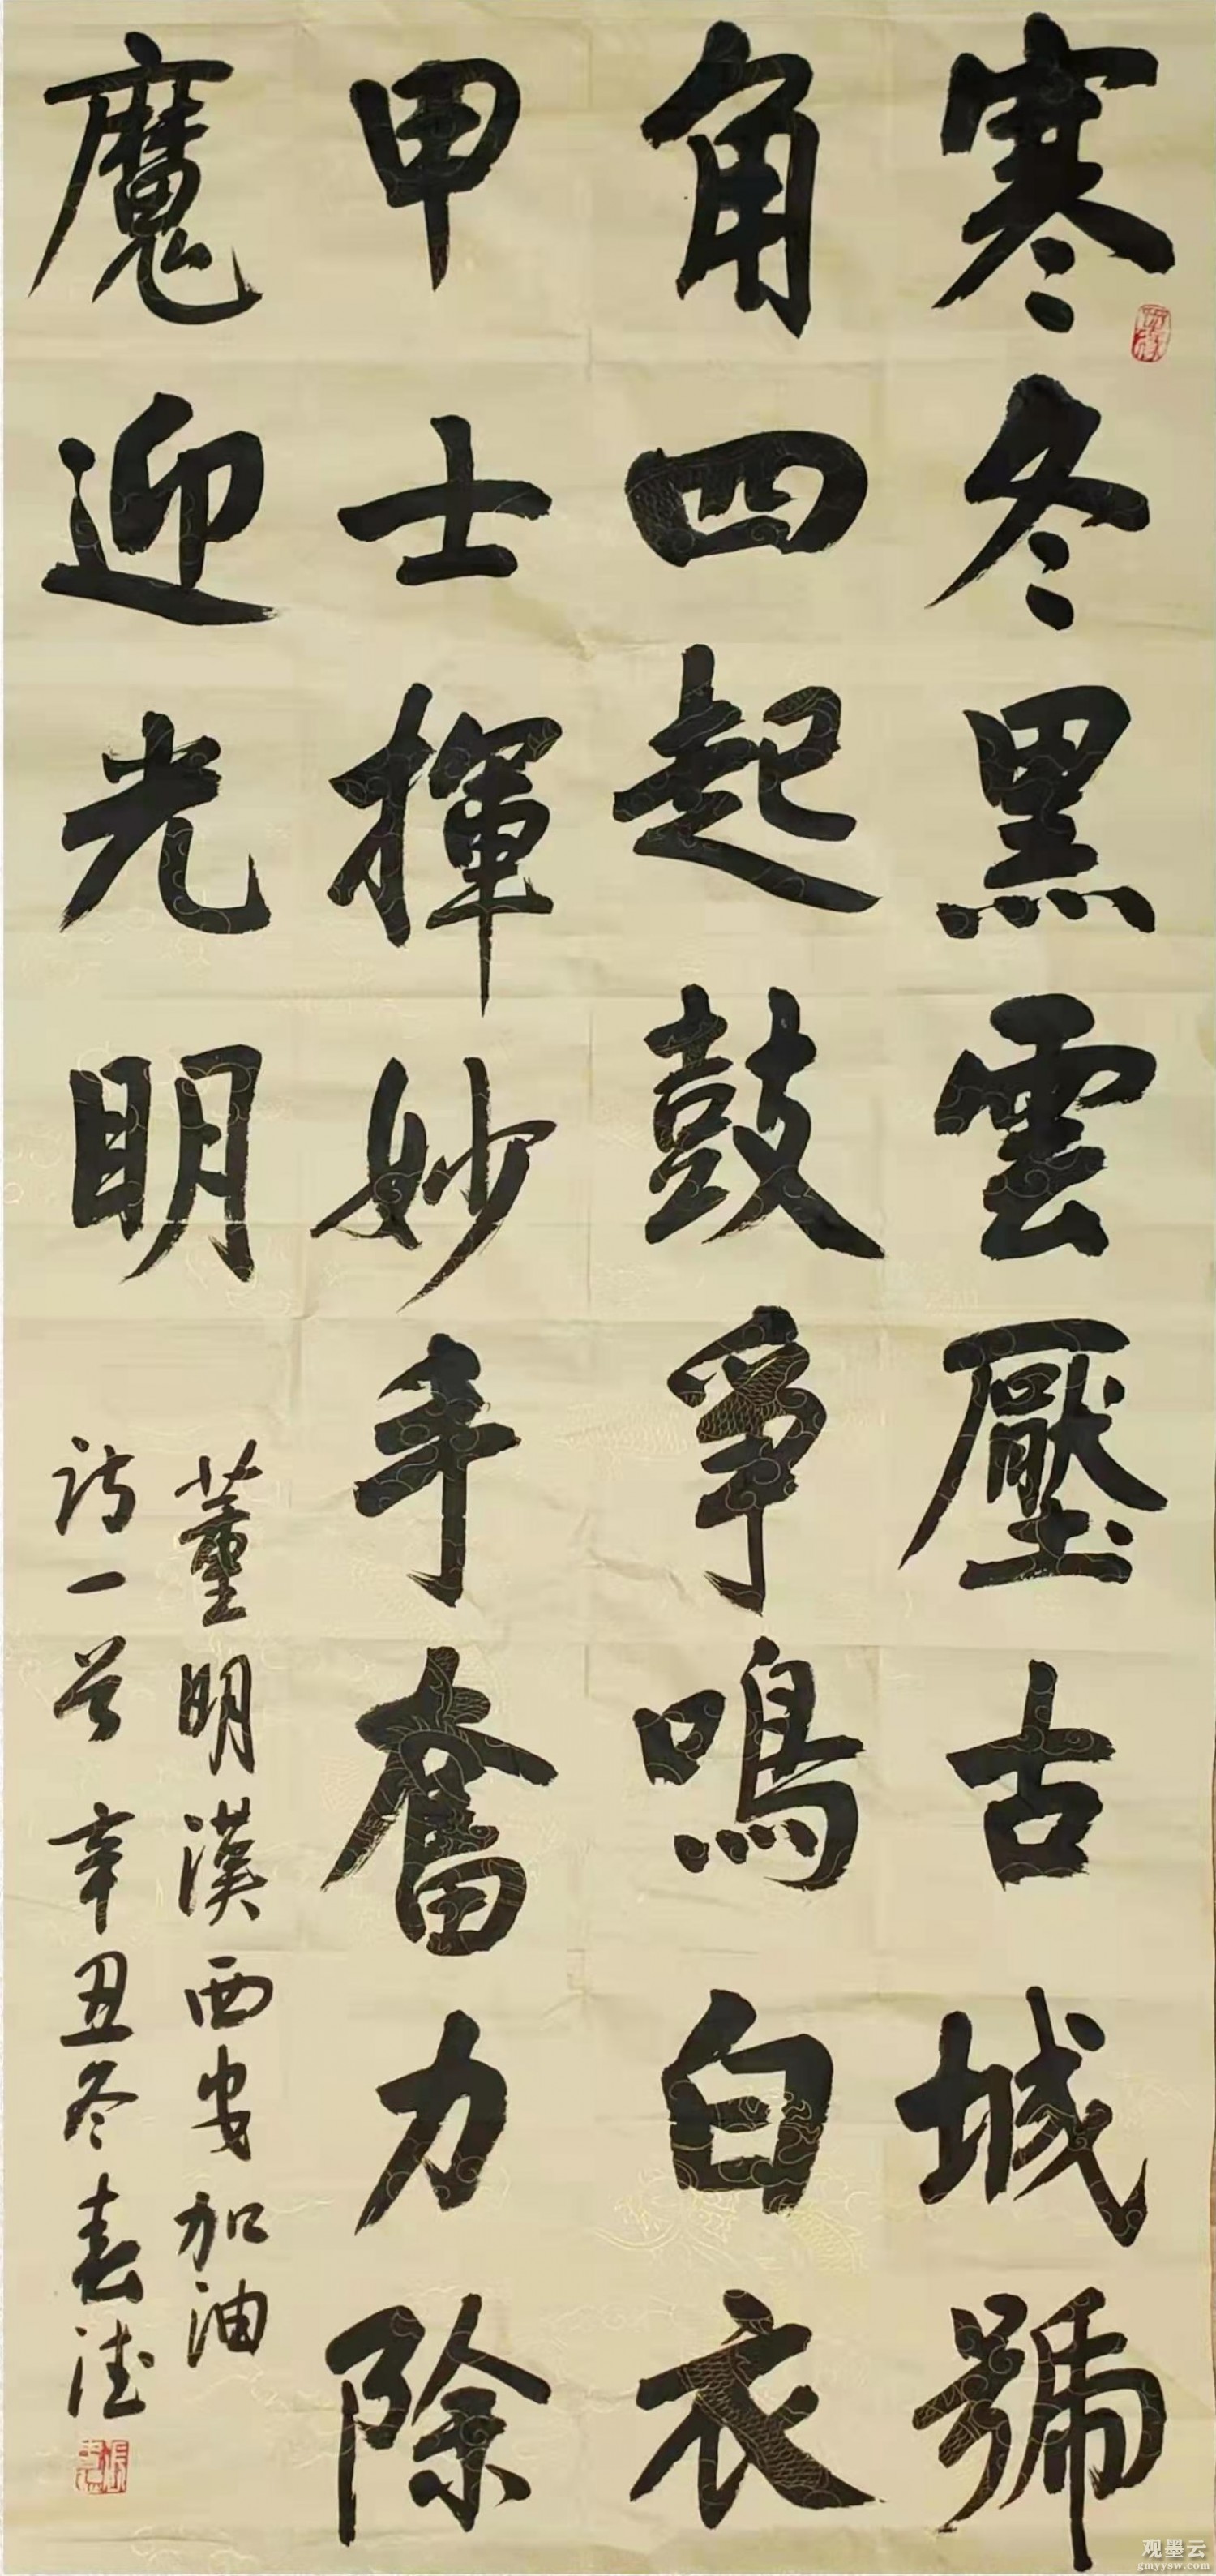 寒冬黑雲壓古城號
角四起鼓爭鳴白衣
甲士揮妙手奮力除
魔迎光明
董明漢西安加油
诗一首 辛丑冬春德
观墨云
gmyysw.com